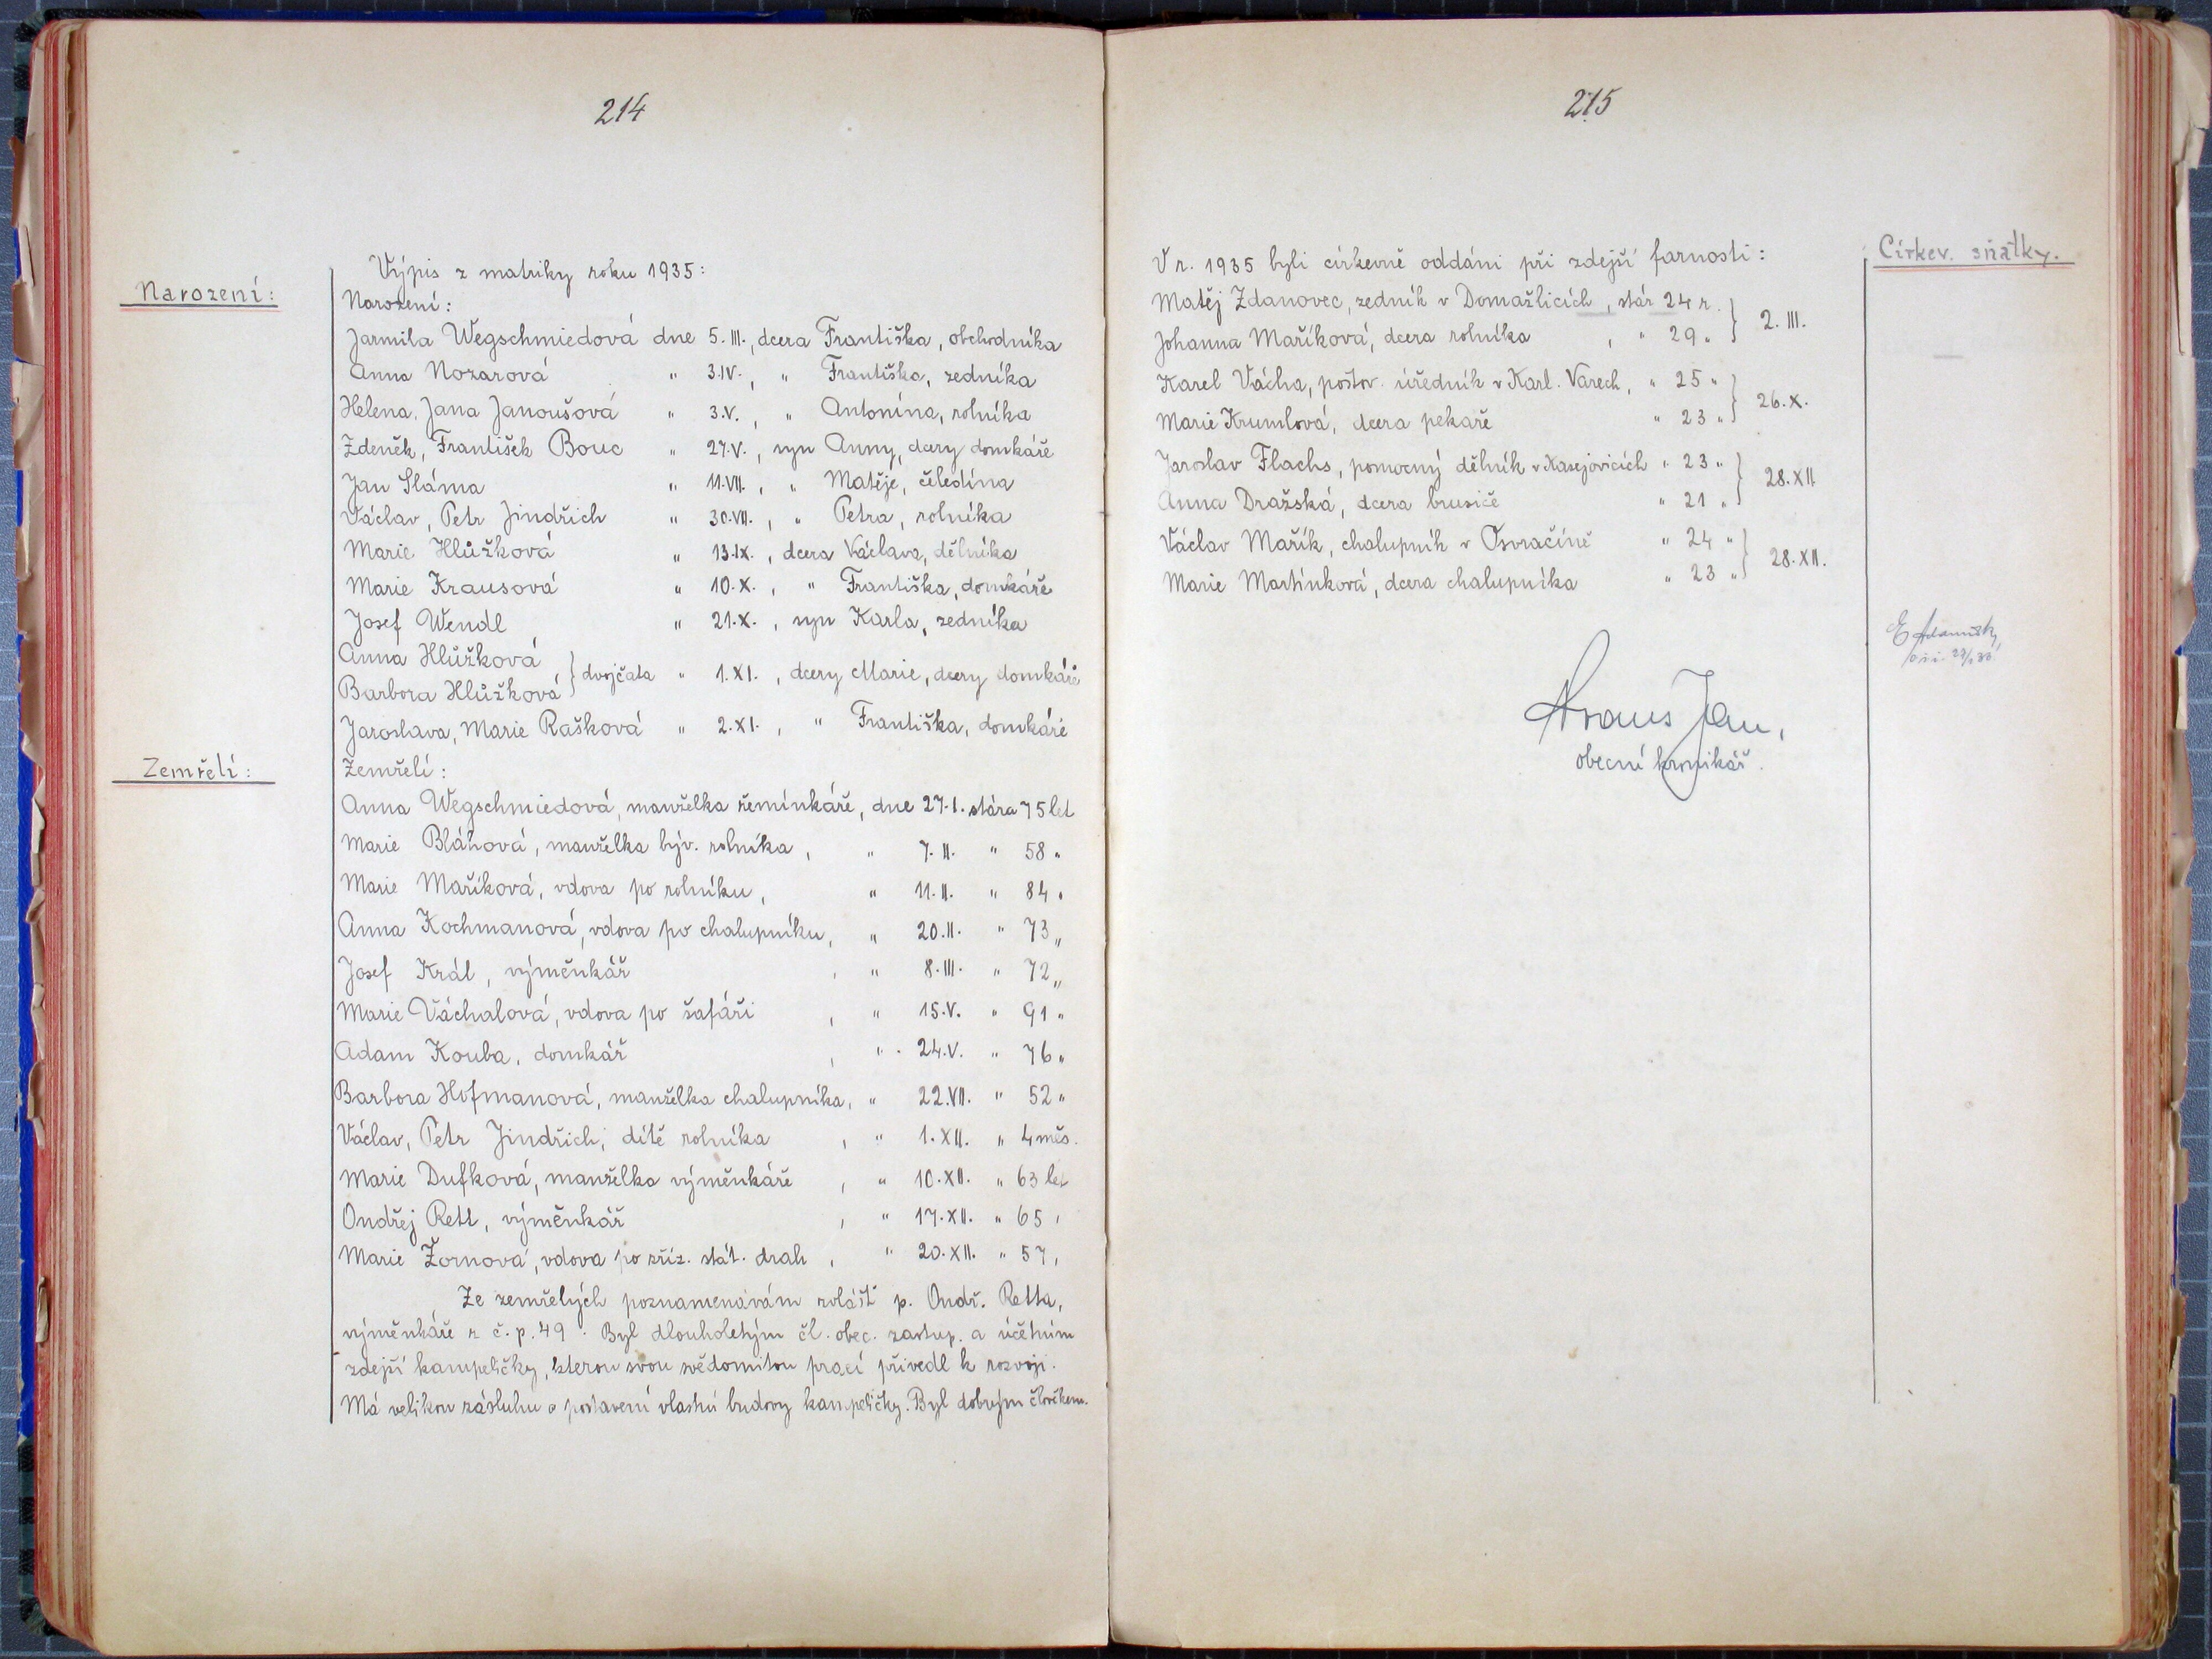 214
Narození:
Výpis z matriky roku 1935:
Narození:
Jarmila Wegschmiedová dne 5. III., dcera Františka, obchodníka
Anna Nozarová " 3.IV., " Františka, zedníka
Helena, Jana Janoušová " 3.V., " Antonína, rolníka
Zdeněk, František Bouc " 27.V., syn Anny, dcery domkáře
Jan Sláma " 11.VII., " Matěje, čeledína
Václav, Petr Jindřich " 30.VII., " Petra, rolníka
Marie Hlůžková " 13.IX., dcera Václava, dělníka
Marie Krausová " 10.X., " Františka, domkáře
Josef Wendl " 21.X., syn Karla, zedníka
Anna Hlůžková
Barbora Hlůžková } dvojčata " 1.XI., dcery Marie, dcery domkáře
Jaroslava, Marie Rašková " 2.XI., " Františka, domkáře
Zemřelí:
Zemřelí:
Anna Wegschmiedová, manželka řemínkáře, dne 27.I. stára 75 let
Marie Bláhová, manželka býv. rolníka, " 7.II. " 58 "
Marie Maříková, vdova po rolníku, " 11.II. " 84 "
Anna Kochmanová, vdova po chalupníku, " 20.II. " 73 "
Josef Král, výměnkář, " 8.III. " 72 "
Marie Váchalová, vdova po šafáři, " 15.V. " 91 "
Adam Kouba, domkář, " 24.V. " 76 "
Barbora Hofmanová, manželka chalupníka, " 22.VII. " 52 "
Václav, Petr Jindřich, dítě rolníka, " 1.XII. " 4 měs.
Marie Dufková, manželka výměnkáře, " 10.XII. " 63 let
Ondřej Rett, výměnkář, " 17.XII. " 65 "
Marie Žornová, vdova po zříz. stát. drah, " 20.XII. " 57 "
Ze zemřelých poznamenávám zvlášť p. Ondř. Retta,
výměnkáře z č.p. 49. Byl dlouholetým čl. obec. zastup. a účetním
zdejší kampeličky, kterou svou svědomitou prací přivedl k rozvoji.
Má velikou zásluhu o postavení vlastní budovy kampeličky. Byl dobrým člověkem.
215
Církev. sňatky.
V r. 1935 byli církevně oddáni při zdejší farnosti:
Matěj Zdanovec, zedník v Domažlicích, stár 24 r. } 2. III.
Johanna Maříková, dcera rolníka, " 29 "
Karel Vácha, poštov. úředník v Karl. Varech, " 25 " } 26.X.
Marie Krumlová, dcera pekaře " 23 "
Jaroslav Flachs, pomocný dělník v Kasejovicích " 23 " } 28.XII
Anna Dražská, dcera brusiče " 21 "
Václav Mařík, chalupník v Osvračíně " 24 " } 28.XII.
Marie Martínková, dcera chalupníka " 23 "
Kraus Jan,
obecní kronikář.